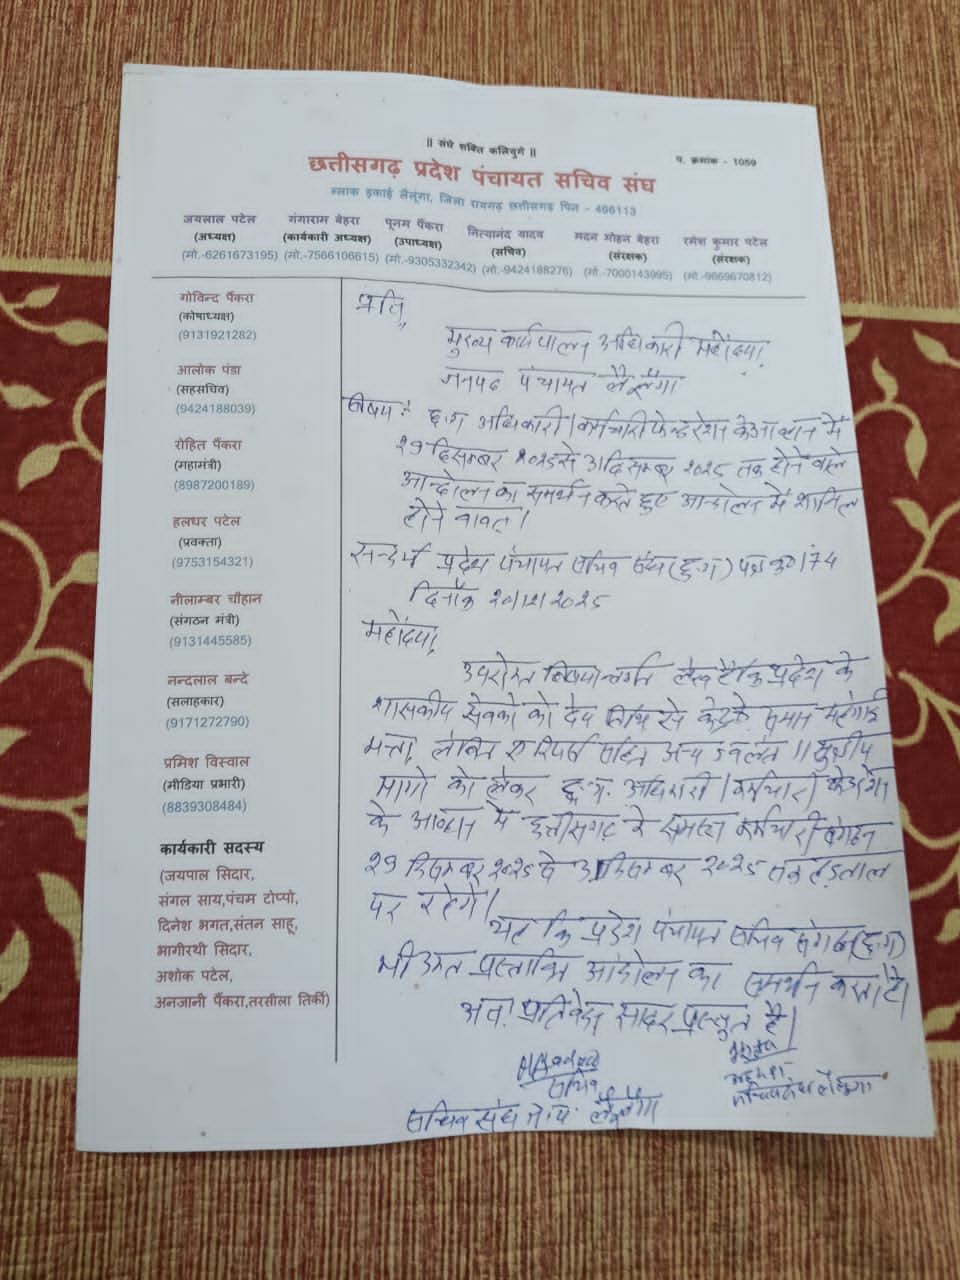 || संघे शक्ति कलियुगे ||
प. क्रमांक - 1059
छत्तीसगढ़ प्रदेश पंचायत सचिव संघ
ब्लाक इकाई लैलूंगा, जिला रायगढ़ छत्तीसगढ़ पिन - 496113
जयलाल पटेल
(अध्यक्ष)
(मो.-6261673195)
गंगाराम बेहरा
(कार्यकारी अध्यक्ष)
(मो.-7566106615)
पूनम पैंकरा
(उपाध्यक्ष)
(मो.-9305332342)
नित्यानंद यादव
(सचिव)
(मो.-9424188276)
मदन मोहन बेहरा
(संरक्षक)
(मो.-7000143995)
रमेश कुमार पटेल
(संरक्षक)
(मो.-9669670812)
गोविन्द पैंकरा
(कोषाध्यक्ष)
(9131921282)
आलोक पंडा
(सहसचिव)
(9424188039)
रोहित पैंकरा
(महामंत्री)
(8987200189)
हलधर पटेल
(प्रवक्ता)
(9753154321)
नीलाम्बर चौहान
(संगठन मंत्री)
(9131445585)
नन्दलाल बन्दे
(सलाहकार)
(9171272790)
प्रमिश विस्वाल
(मीडिया प्रभारी)
(8839308484)
कार्यकारी सदस्य
(जयपाल सिदार,
संगल साय,पंचम टोप्पो,
दिनेश भगत,संतन साहू,
भागीरथी सिदार,
अशोक पटेल,
अनजानी पैंकरा,तरसीला तिर्की)
प्रति,
मुख्य कार्यपालन अधिकारी महोदया,
जनपद पंचायत लैलूँगा
विषय : छ.ग अधिकारी/कर्मचारी फेडरेशन के आव्हान में
29 दिसम्बर 2025 से 31 दिसम्बर 2025 तक होने वाले
आन्दोलन का समर्थन करते हुए आन्दोलन में शामिल
होने बाबत्।
सन्दर्भ प्रदेश पंचायत सचिव संघ (छ.ग) पत्र क्र0 174
दिनाँक 20/12/2025
महोदया,
उपरोक्त विषयान्तर्गत लेख है कि प्रदेश के
शासकीय सेवकों को देय तिथि से केन्द्र के समान महंगाई
भत्ता, लंबित एरियर्स सहित अन्य ज्वलंत 11 सूत्रीय
मांगो को लेकर छ.ग. अधिकारी/कर्मचारी फेडरेशन
के आव्हान में छत्तीसगढ़ के समस्त कर्मचारी संगठन
29 दिसम्बर 2025 से 31 दिसम्बर 2025 तक हड़ताल
पर रहेंगे।
यह कि प्रदेश पंचायत सचिव संगठन (छ.ग)
भी उक्त प्रस्तावित आंदोलन का समर्थन करता है।
अतः प्रतिवेदन सादर प्रस्तुत है।
सचिव
सचिव संघ लैलूँगा
अध्यक्ष
सचिव संघ लैलूंगा